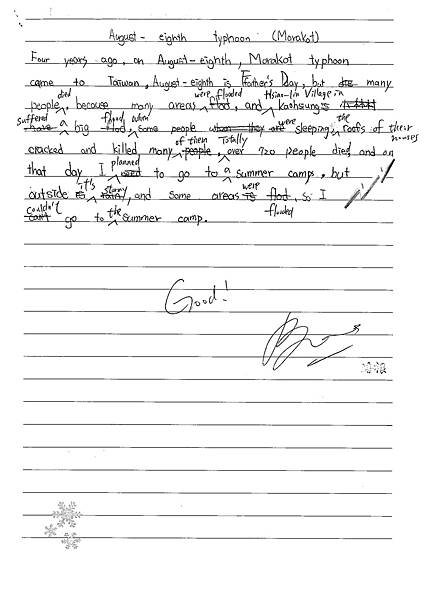 August-eighth typhoon (Morakot)
Four years ago, on August-eighth, Morakot typhoon
came to Taiwan, August-eighth is Father's Day, but many
died were flooded Hsiao-Lin Village in
people, because many areas flod, and kaohsung's
suffered a flood when were the
have a big flod, some people when they are sleeping, roofs of their
houses
of them Totally
cracked and killed many people, over 720 people died, and on
planned a
that day I used to go to summer camp, but
it's stormy were
outside is rainy, and some areas is flod, so I
couldn't the flooded
can't go to summer camp.
Good!